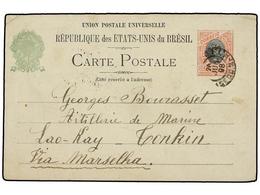 UNION POSTALE UNIVERSELLE
RÉPUBLIQUE des ÉTATS-UNIS du BRÉSIL
CARTE POSTALE
(Côté réservé à l'adresse)
Georges Bourasset
Artillerie de Marine
Lao-Kay — Tonkin
Via Marselha.